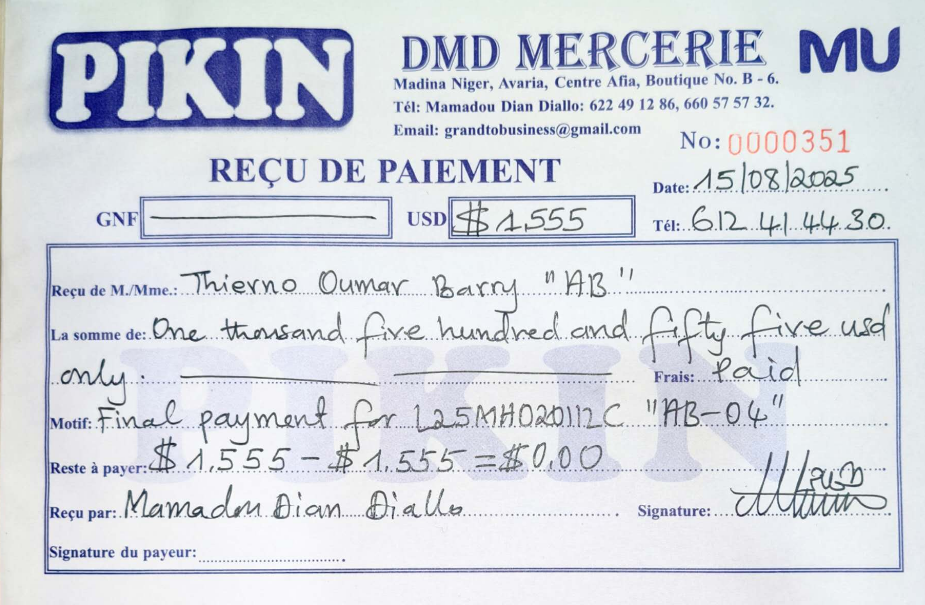 PIKIN
DMD MERCERIE
MU
Madina Niger, Avaria, Centre Afia, Boutique No. B - 6.
Tél: Mamadou Dian Diallo: 622 49 12 86, 660 57 57 32.
Email: grandtobusiness@gmail.com
No: 0000351
REÇU DE PAIEMENT
Date: 15/08/2025
GNF USD $ 1,555 Tél: 612 41 44 30.
Reçu de M./Mme.: Thierno Oumar Barry "AB"
La somme de: One thousand five hundred and fifty five usd
only. Frais: Paid
Motif: Final payment for L25MH020112C "AB-04"
Reste à payer: $ 1,555 - $ 1,555 = $0,00
Reçu par: Mamadou Dian Diallo Signature:
Signature du payeur:
PIKIN